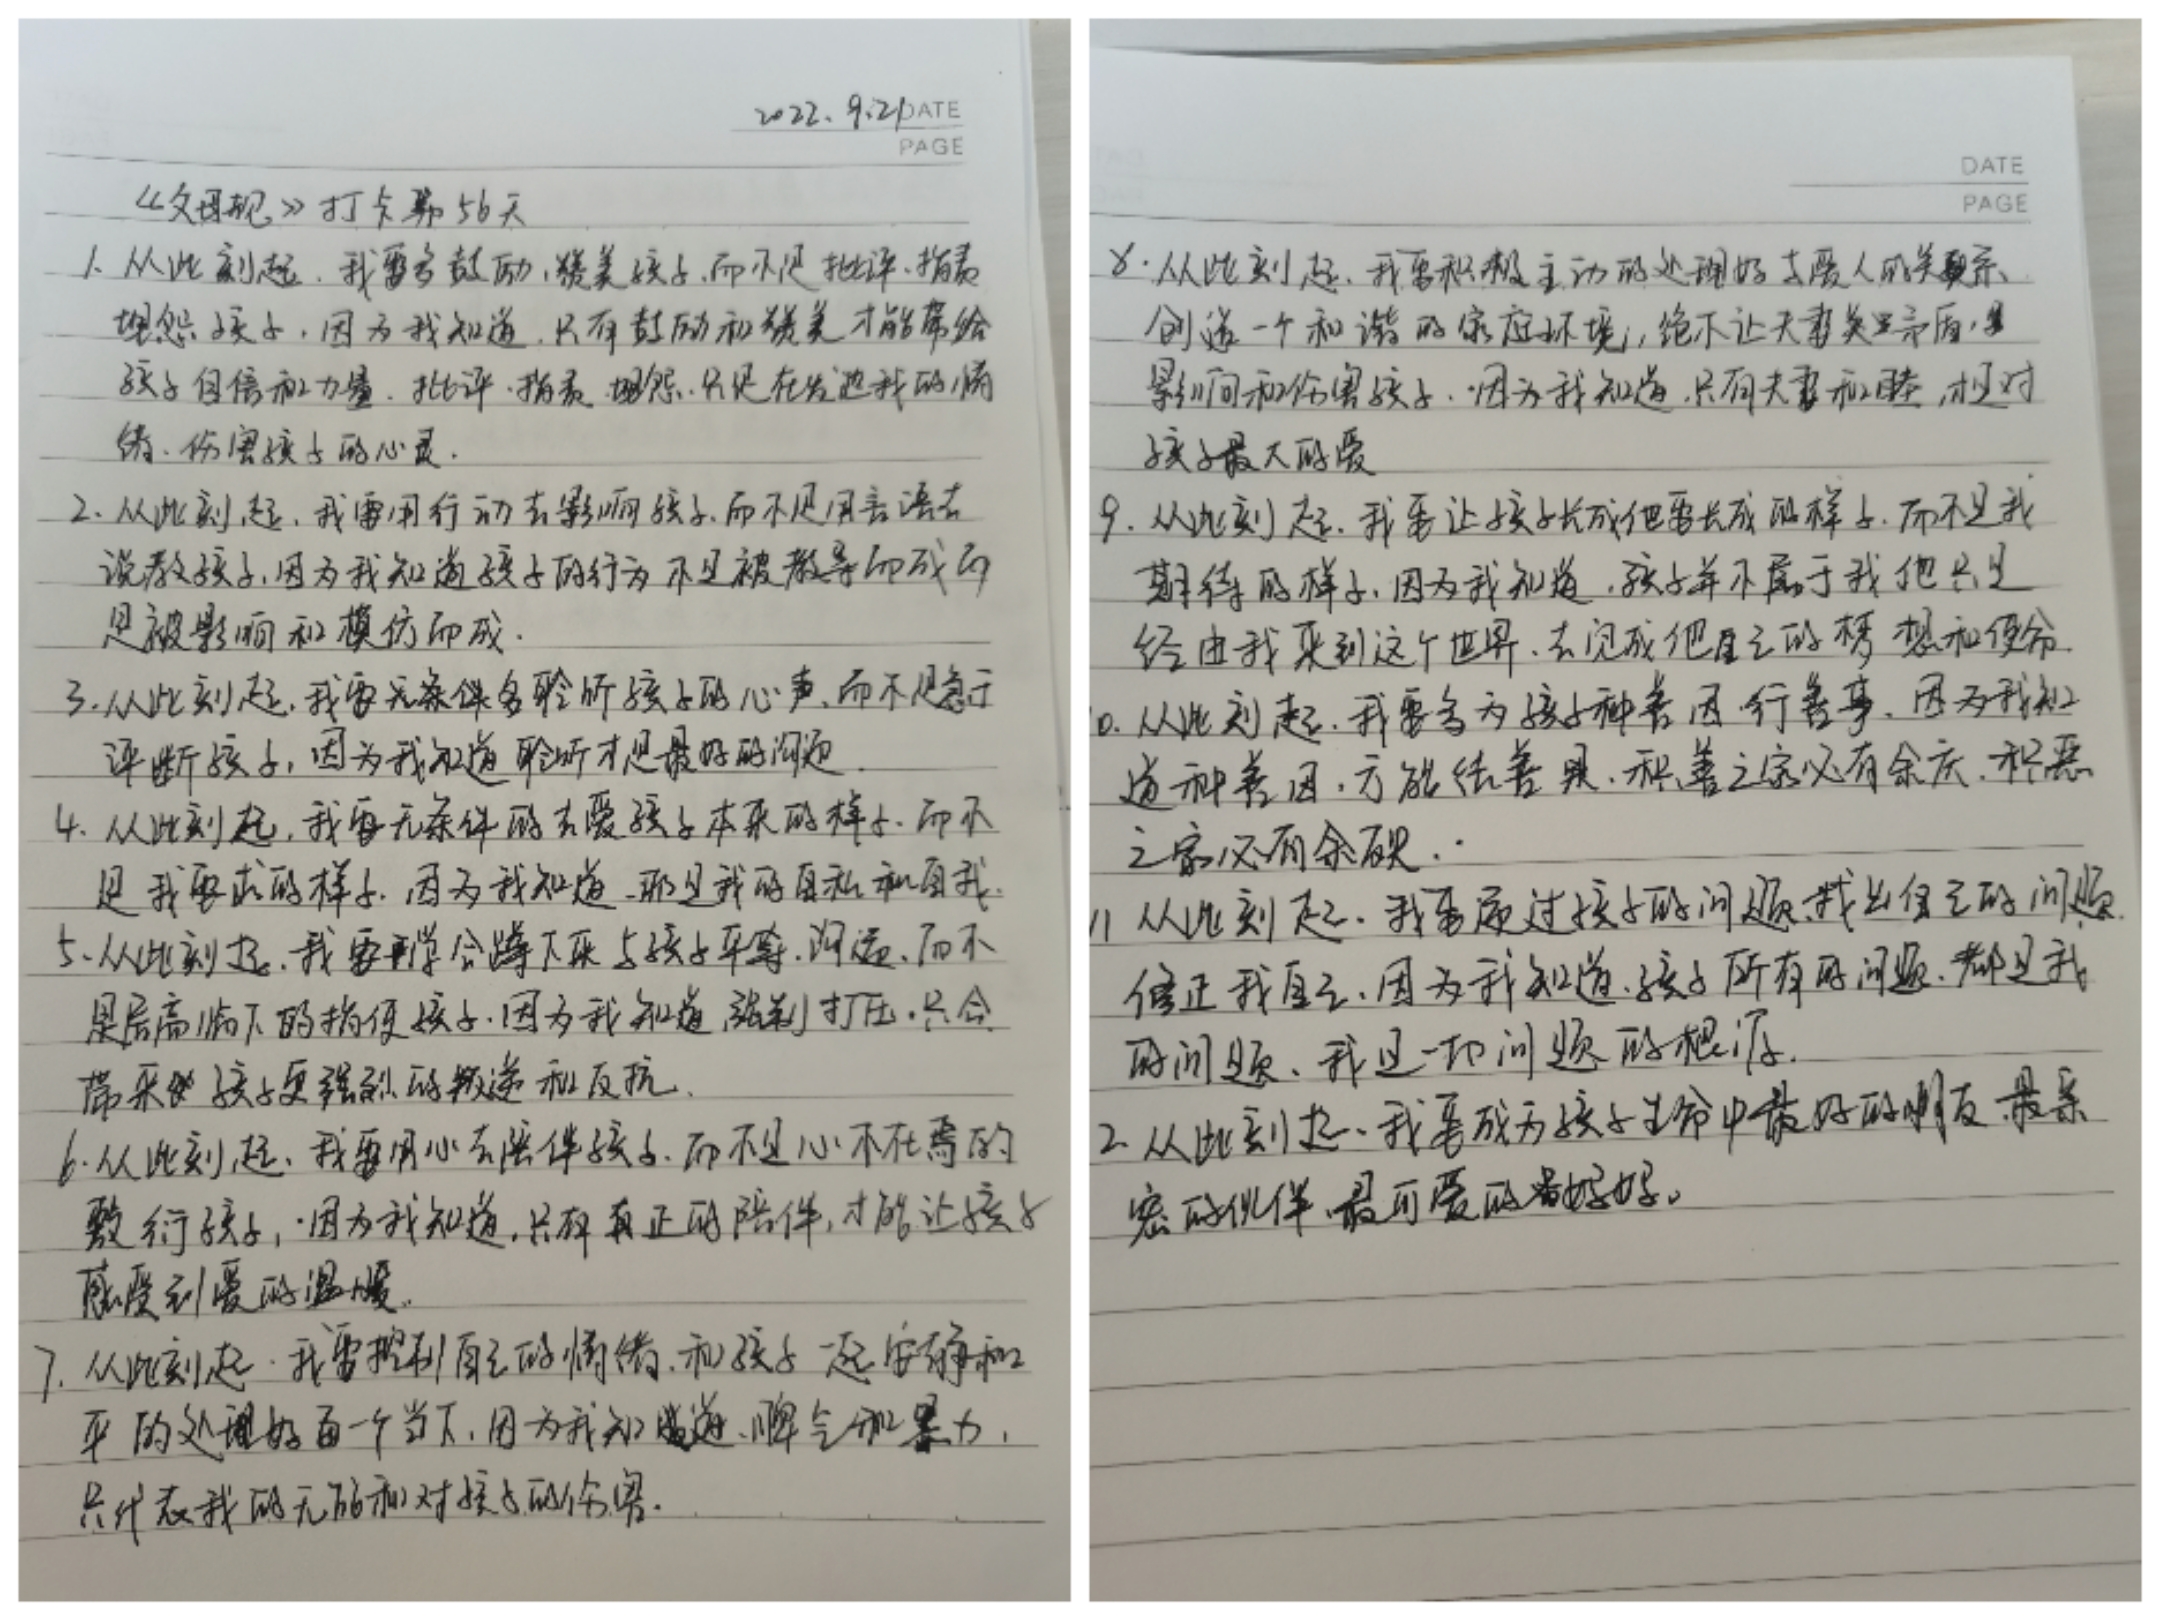 2022.9.21 DATE
PAGE
《父母规》打卡第56天
1. 从此刻起,我要多鼓励,赞美孩子,而不是批评、指责
埋怨孩子,因为我知道,只有鼓励和赞美才能带给
孩子自信和力量,批评、指责、埋怨,只是在发泄我的情
绪、伤害孩子的心灵.
2. 从此刻起,我要用行动去影响孩子,而不是用言语去
说教孩子,因为我知道孩子的行为不是被教导而成而
是被影响和模仿而成.
3. 从此刻起,我要无条件多聆听孩子的心声,而不是急于
评断孩子,因为我知道聆听才是最好的沟通.
4. 从此刻起,我要无条件的去爱孩子本来的样子,而不
是我要求的样子,因为我知道,那是我的自私和自我.
5. 从此刻起,我要学会蹲下来与孩子平等、沟通,而不
是居高临下的指使孩子,因为我知道,强制打压,只会
带来孩子更强烈的叛逆和反抗.
6. 从此刻起,我要用心去陪伴孩子,而不是心不在焉的
敷衍孩子,因为我知道,只有真正的陪伴,才能让孩子
感受到爱的温暖.
7. 从此刻起,我要控制自己的情绪,和孩子一起安静和
平的处理好每一个当下,因为我知道,脾气和暴力,
只代表我的无能和对孩子的伤害.
DATE
PAGE
8. 从此刻起,我要积极主动的处理好与爱人的关系,
创造一个和谐的家庭环境,绝不让夫妻关系矛盾,
影响和伤害孩子,因为我知道,只有夫妻和睦,才是对
孩子最大的爱
9. 从此刻起,我要让孩子长成他要长成的样子,而不是我
期待的样子,因为我知道,孩子并不属于我他只是
经由我来到这个世界,去完成他自己的梦想和使命.
10. 从此刻起,我要多为孩子种善因 行善事,因为我知
道种善因,方能结善果,积善之家必有余庆,积恶
之家必有余殃.
11 从此刻起,我要通过孩子的问题,找出自己的问题,
修正我自己,因为我知道,孩子所有的问题,都是我
的问题,我是一切问题的根源.
2. 从此刻起,我要成为孩子生命中最好的朋友,最亲
密的伙伴,最可爱的妈妈。